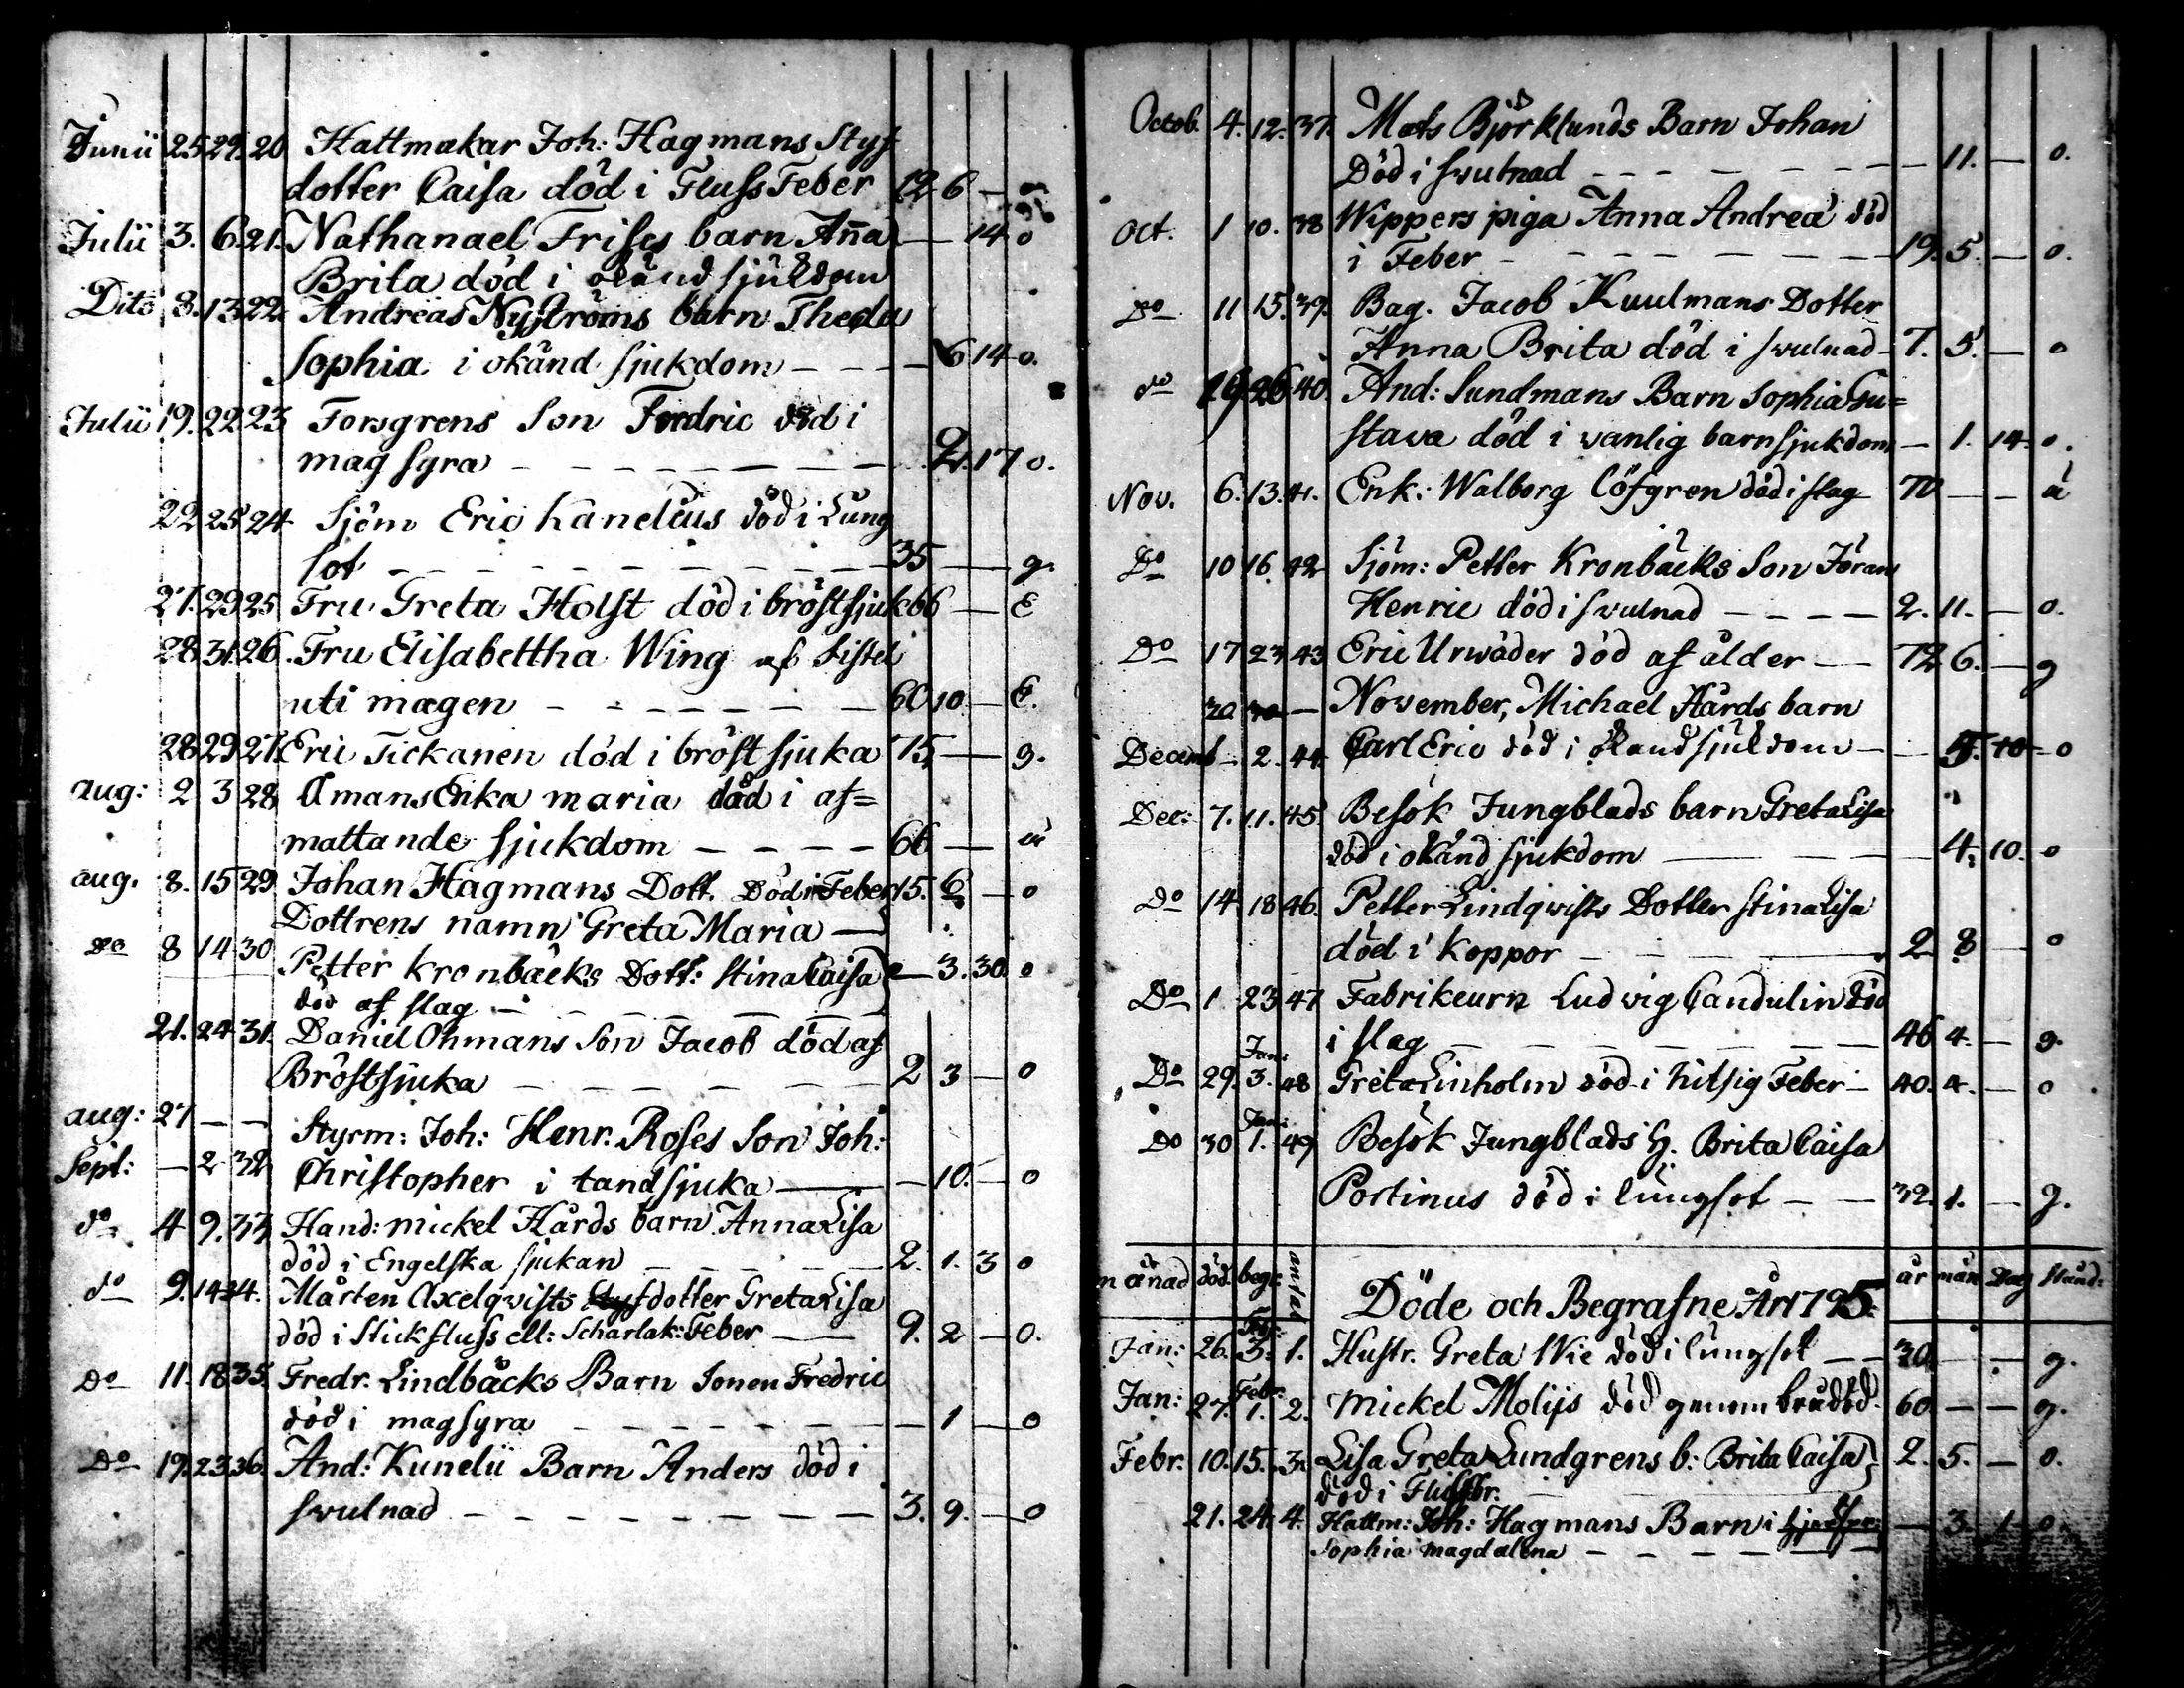 Junii 25 29. 20 Hattmakar Joh: Hagmans Styf
dotter Caisa död i FlussFeber 12 6 —
Julii 3. 6. 21. Nathanael Frises barn Aña — 14 o
Brita död i okänd sjukdom
Dito 8. 13 22 Andreas Nyströms barn Theda
Sophia i okänd sjukdom — — — 6 14 o.
Julii 19. 22 23 Forsgrens Son Fredric död i
mag syra — — — — — — — — 2. 17 o.
22 25 24 Sjöm Eric Kanelius död i Lung
sot — — — — — — — — 35 — g.
27. 29 25 Fru Greta Holst död i bröstsjuk 66 — E
28. 31. 26. Fru Elisabettha Wing af Fistel
uti magen — — — — — — 60 10 — E.
28 29 27. Eric Tickanen död i bröst sjuka 75, — g.
aug: 2 3 28 Amans Enka maria död i af=
mattande sjukdom — — — — 66 —
aug. 8. 15 29 Johan Hagmans Dott. Död i Feber 15. 6 — o
Dottrens namn Greta Maria —
Do 8 14 30 Petter Kronbäcks Dott: Stina Caisa — 3. 30. o
död af slag — — — — — —
21. 24 31. Daniel Öhmans Son Jacob död af
Bröstsjuka — — — — — — 2 3 — o
aug: 27 — — Styrm: Joh: Henr. Roses Son Joh:
Sept: — 2 32 Christopher i tandsjuka — — 10. — o
do 4 9. 33 Hand: mickel Hårds barn Anna Lisa
död i Engelska sjukan — — — — — 2. 1. 3 o
do 9. 14 34. Mårten Axelqvists Styfdotter Greta Lisa
död i Stickfluss ell: Scharlak: Feber — 9. 2 — o.
Do 11. 18 35 Fredr. Lindbäcks Barn Sonen Fredric
död i magsyra — — — — — — — 1 — o
Do 19. 23 36. And: Kunelii Barn Anders död i
swulnad — — — — — — — — 3. 9. — o
Octob. 4. 12. 37. Mats Björklunds Barn Johan
Död i swulnad — — — — — — — 11. — o.
Oct. 1 10. 38 Wippers piga Anna Andreä död
i Feber — — — — — — — 19. 5. — o.
Do 11 15. 39. Bag. Jacob Kuulmans Dotter
Anna Brita död i swulnad — 7. 5. — o
do 19 26 40. And: Sundmans Barn Sophia Gu=
stava död i vanlig barnsjukdom — 1. 14. o.
Nov. 6. 13. 41. Enk: Walborg Löfgren död i slag 70 — — ä
Do 10 16. 42 Sjöm: Petter Kronbäcks Son Jöran
Henric död i swulnad — — — — 2. 11. — o.
Do 17 23 43 Eric Urwäder död af ålder — — 72 6. — g
30 30 — November, Michael Hårds barn
Decemb — 2. 44 Carl Eric död i okand sjukdom — — 5. 10 — o
Dec: 7. 11. 45 Besök Jungblads barn Greta Lisa
död i okänd sjukdom — — — 4. 10. o
Do 14 18 46. Petter Lindqvists Dotter Stina Lisa
död i koppor — — — 2 8 — o
Do 1 23 47 Fabrikeurn Ludvig Candulin död
i slag — — — — — — — — 46 4. — g.
Jan:
Do 29. 3. 48 Greta Linholm död i hitsig Feber — 40. 4. — o
Jan:
Do 30 1. 49 Besök Jungblads H. Brita Caisa
Portinus död i lungsot — — 32. 1. — g.
månad död. begr. antal Döde och Begrafne År 1795. år mån. Dag stånd:
Feb:
Jan: 26. 3. 1. Hustr. Greta Wic död i lungsot — — 30 — — g.
Febr.
Jan: 27. 1. 2. Mickel Molijs död genom brådöd. 60 — — g.
Febr. 10. 15. 3. Lisa Greta Lundgrens b: Brita Caisa 2. 5. — o.
död i
21. 24. 4. Hattm: Joh: Hagmans Barn i — 3. 1 o
Sophia Magdalena — — — — — —